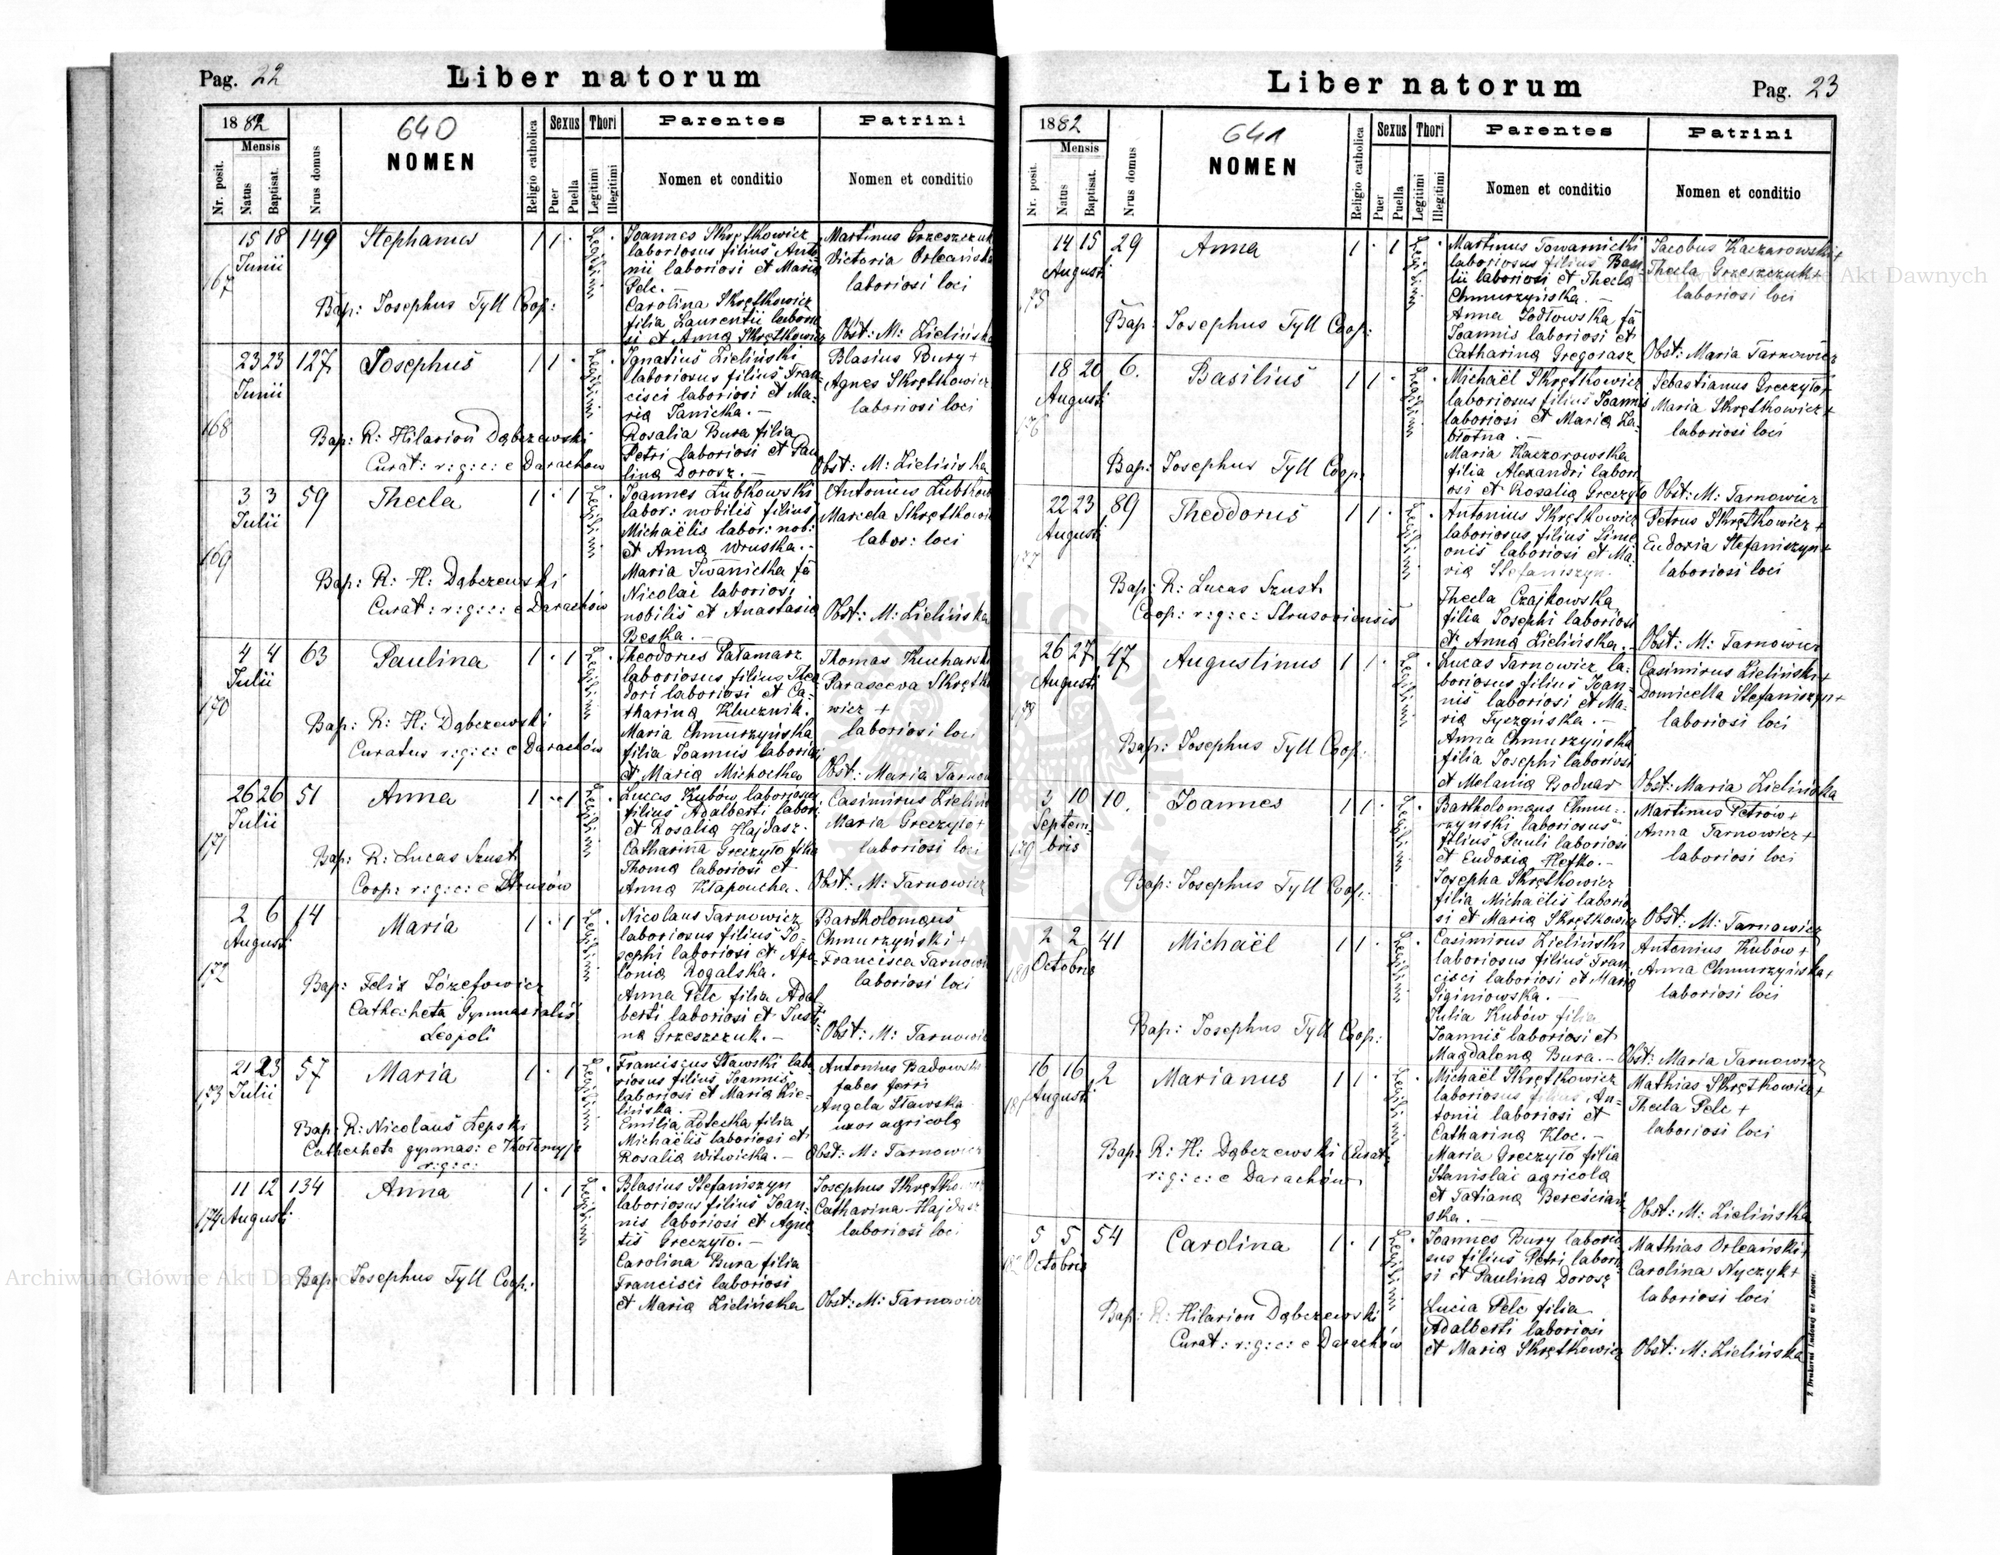 Pag. 22
Liber natorum
1882
640
NOMEN
Nr. posit.
Mensis
Natus
Baptisat.
Nrus domus
Religio catholica
Sexus
Puer
Puella
Thori
Legitimi
Illegitimi
Parentes
Nomen et conditio
Patrini
Nomen et conditio
167
15 18
Junii
149
Stephanus
1 1 .
Legitimi
Bap: Josephus Tyll Coop:
Joannes Skrętkowicz
laboriosus filius Anto-
nii laboriosi et Maria
Pelc. —
Carolina Skrętkowicz
filia Laurentii laborio
si et Anna Skrętkowicz
Martinus Grzeszczuk
Victoria Orleańska
laboriosi loci
Obst: M: Zielińska
168
23 23
Junii
127
Josephus
1 1 .
Legitimi
Bap: R: Hilarion Dąbczewski
Curat: r: g: c: e Darachów
Ignatius Zieliński
laboriosus filius Fran-
cisci laboriosi et Ma-
ria Janicka. —
Rosalia Bura filia
Petri laboriosi et Pau
lina Dorosz. —
Blasius Bury +
Agnes Skrętkowicz
laboriosi loci
Obst: M: Zielińska
169
3 3
Julii
59
Thecla
1 . 1
Legitimi
Bap: R: H: Dąbczewski
Curat: r: g: c: e Darachów
Joannes Łubkowski
labor: nobilis filius
Michaëlis labor: nob:
et Anna Wruska. —
Maria Iwanicka fa
Nicolai laboriosi
nobilis et Anastasia
Beska. —
Antonius Łubkow
Marcela Skrętkowi
labor: loci
Obst: M: Zielińska
170
4 4
Julii
63
Paulina
1 . 1
Legitimi
Bap: R: H: Dąbczewski
Curatus r: g: c: e Darachów
Theodorus Pałamarz
laboriosus filius Theo
dori laboriosi et Ca-
tharina Klucznik.
Maria Chmurzyńska
filia Joannis laboriosi
et Maria Michocka
Thomas Kucharsk
Parasceva Skrętko
wicz +
laboriosi loci
Obst: Maria Tarnow
171
26 26
Julii
51
Anna
1 . 1
Legitimi
Bap: R: Lucas Szust
Coop: r: g: c: e Strusów
Lucas Kubów laboriosus
filius Adalberti labor:
et Rosalia Hajdasz.
Catharina Greczyło filia
Thoma laboriosi et
Anna Kłapoucha.
Casimirus Zielin
Maria Greczyło +
laboriosi loci
Obst: M: Tarnowicz
172
2 6
Augusti
14
Maria
1 . 1
Legitimi
Bap: Felix Józefowicz
Catheheta Gymnasialis
Leopoli
Nicolaus Tarnowicz
laboriosus filius Jo-
sephi laboriosi et Apo-
lonia Rogalska.
Anna Pelc filia Adal
berti laboriosi et Justi
na Grzeszczuk. —
Bartholomæus
Chmurzyński +
Francisca Tarnowi
laboriosi loci
Obst: M: Tarnowic
173
21 23
Julii
57
Maria
1 . 1
Legitimi
Bap: R: Nicolaus Łepski
Catheheta gymnas: e Kołomyje
r: g: c:
Franciscus Stawski labo
riosus filius Joannis
laboriosi et Maria Zie-
lińska.
Emilia Łotecka filia
Michaëlis laboriosi et
Rosalia Witwicka. —
Antonius Badowsk
faber ferri
Angela Stawska
uxor agricola
Obst: M: Tarnowicz
174
11 12
Augusti
134
Anna
1 . 1
Legitimi
Bap: Josephus Tyll Coop:
Blasius Stefaniszyn
laboriosus filius Joan-
nis laboriosi et Agne
tis Greczyło. —
Carolina Bura filia
Francisci laboriosi
et Maria Zielińska
Josephus Skrętkowicz
Catharina Hajdasz
laboriosi loci
Obst: M: Tarnowicz
Liber natorum
Pag. 23
1882
641
NOMEN
Nr. posit.
Mensis
Natus
Baptisat.
Nrus domus
Religio catholica
Sexus
Puer
Puella
Thori
Legitimi
Illegitimi
Parentes
Nomen et conditio
Patrini
Nomen et conditio
175
14 15
Augusti
29
Anna
1 . 1
Legitimi
Bap: Josephus Tyll Coop:
Martinus Towarnicki
laboriosus filius Basi
lii laboriosi et Thecla
Chmurzyńska. —
Anna Jodłowska fa
Joannis laboriosi et
Catharina Gregorasz
Jacobus Kaczarowski +
Thecla Grzeszczuk +
laboriosi loci
Obst: Maria Tarnowicz
176
18 20
Augusti
6.
Basilius
1 1 .
Legitimi
Bap: Josephus Tyll Coop:
Michaël Skrętkowicz
laboriosus filius Joannis
laboriosi et Maria Za-
błotna. —
Maria Kaczorowska
filia Alexandri labori
osi et Rosalia Greczyło
Sebastianus Greczyło +
Maria Skrętkowicz +
laboriosi loci
Obst: M: Tarnowicz
177
22 23
Augusti
89
Theodorus
1 1 .
Legitimi
Bap: R: Lucas Szust
Coop: r: g: c: Strusoviensis
Antonius Skrętkowicz
laboriosus filius Sime
onis laboriosi et Ma-
ria Stefaniszyn.
Thecla Czajkowska
filia Josephi laboriosi
et Anna Zielińska. —
Petrus Skrętkowicz +
Eudoxia Stefaniszyn +
laboriosi loci
Obst: M: Tarnowicz
178
26 27
Augusti
47
Augustinus
1 1 .
Legitimi
Bap: Josephus Tyll Coop:
Lucas Tarnowicz la-
boriosus filius Joan-
nis laboriosi et Ma-
ria Tyczyńska. —
Anna Chmurzyńska
filia Josephi laboriosi
et Melania Bodnar
Casimirus Zieliński +
Domicella Stefaniszyn +
laboriosi loci
Obst: Maria Zielińska
179
3 10
Septem-
bris
10.
Joannes
1 1 .
Legitimi
Bap: Josephus Tyll Coop:
Bartholomæus Chmu-
rzyński laboriosus
filius Pauli laboriosi
et Eudoxia Hefko. —
Josepha Skrętkowicz
filia Michaëlis laborio
si et Maria Skrętkowicz
Martinus Petrów +
Anna Tarnowicz +
laboriosi loci
Obst: M: Tarnowicz
180
2 2
Octobris
41
Michaël
1 1 .
Legitimi
Bap: Josephus Tyll Coop:
Casimirus Zieliński
laboriosus filius Fran
cisci laboriosi et Maria
Siginiowska. —
Julia Kubów filia
Joannis laboriosi et
Magdalena Bura. —
Antonius Kubów +
Anna Chmurzyńska +
laboriosi loci
Obst: Maria Tarnowicz
181
16 16
Augusti
2
Marianus
1 1 .
Legitimi
Bap: R: H: Dąbczewski Curat:
r: g: c: e Darachów
Michaël Skrętkowicz
laboriosus filius An-
tonii laboriosi et
Catharina Kloc. —
Maria Greczyło filia
Stanislai agricola
et Tatiana Bereściań
ska. —
Mathias Skrętkowicz +
Thecla Pelc +
laboriosi loci
Obst: M: Zielińska
182
5 5
Octobris
54
Carolina
1 . 1
Legitimi
Bap: R: Hilarion Dąbczewski
Curat: r: g: c: e Darachów
Joannes Bury laborio
sus filius Petri laborio
si et Paulina Dorosz
Lucia Pelc filia
Adalberti laboriosi
et Maria Skrętkowicz
Mathias Orleański +
Carolina Nyczyk +
laboriosi loci
Obst: M: Zielińska
Z Drukarni Ludowej we Lwowie.
Archiwum Główne Akt Dawnych
Archiwum Główne Akt Dawnych
ARCHIWUM GŁÓWNE AKT DAWNYCH